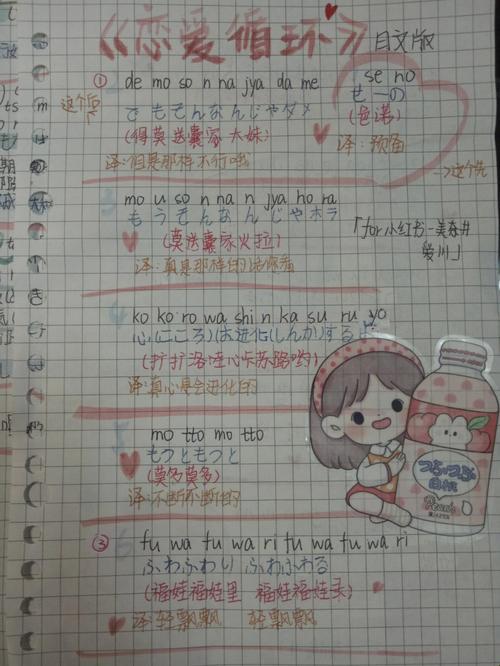 《恋爱循环》日文版
se no
せーの
(色诺)
译:预备
→这个先
这个后
① de mo so n na jya da me
でもそんなんじゃダメ
(得莫送囊家 大妹)
译:但是那样不行哦
mo u so n na n jya ho ra
もうそんなんじゃホラ
(莫送囊家火拉)
译:真是那样的话你看
「for小红书-美奈井
爱川」
ko ko ro wa shi n ka su ru yo
心(こころ)は进化(しんか)するよ
(扩扩洛哇心卡苏路哟)
译:真心是会进化的
mo tto mo tto
もっともっと
(莫多莫多)
译:不断不断的
③ fu wa fu wa ri fu wa fu wa ri
ふわふわり ふわふわる
(福娃福娃里 福娃福娃录)
译:轻飘飘 轻飘飘
つぶつぶ
白桃